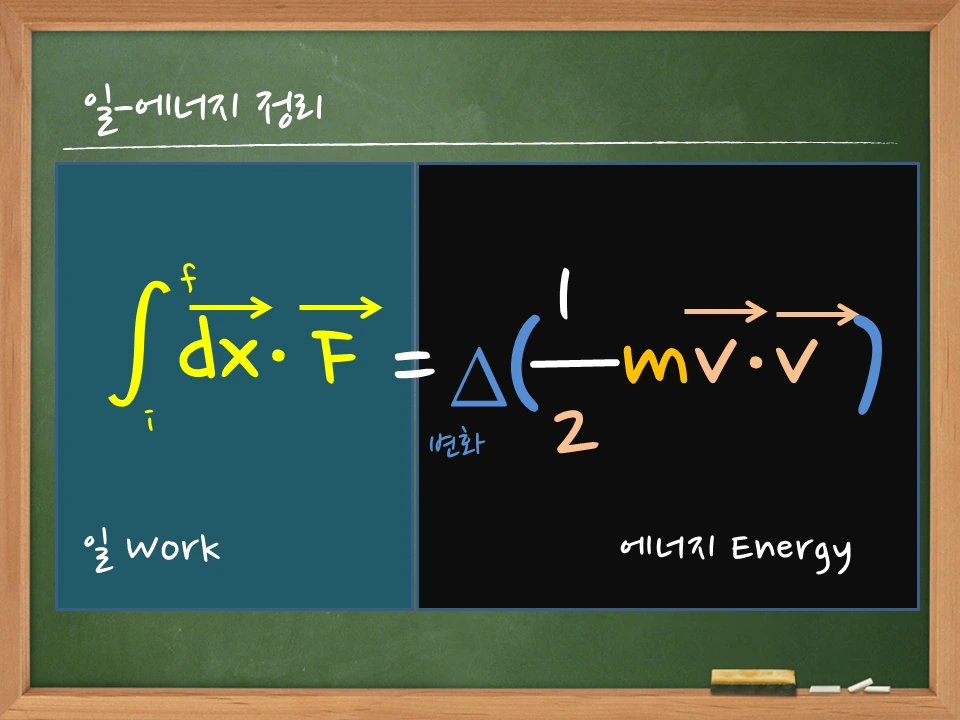 일-에너지 정리
∫ᵢᶠ d⃗x⃗ · F⃗ = Δ(1/2 m v⃗ · v⃗)
변화
일 Work
에너지 Energy